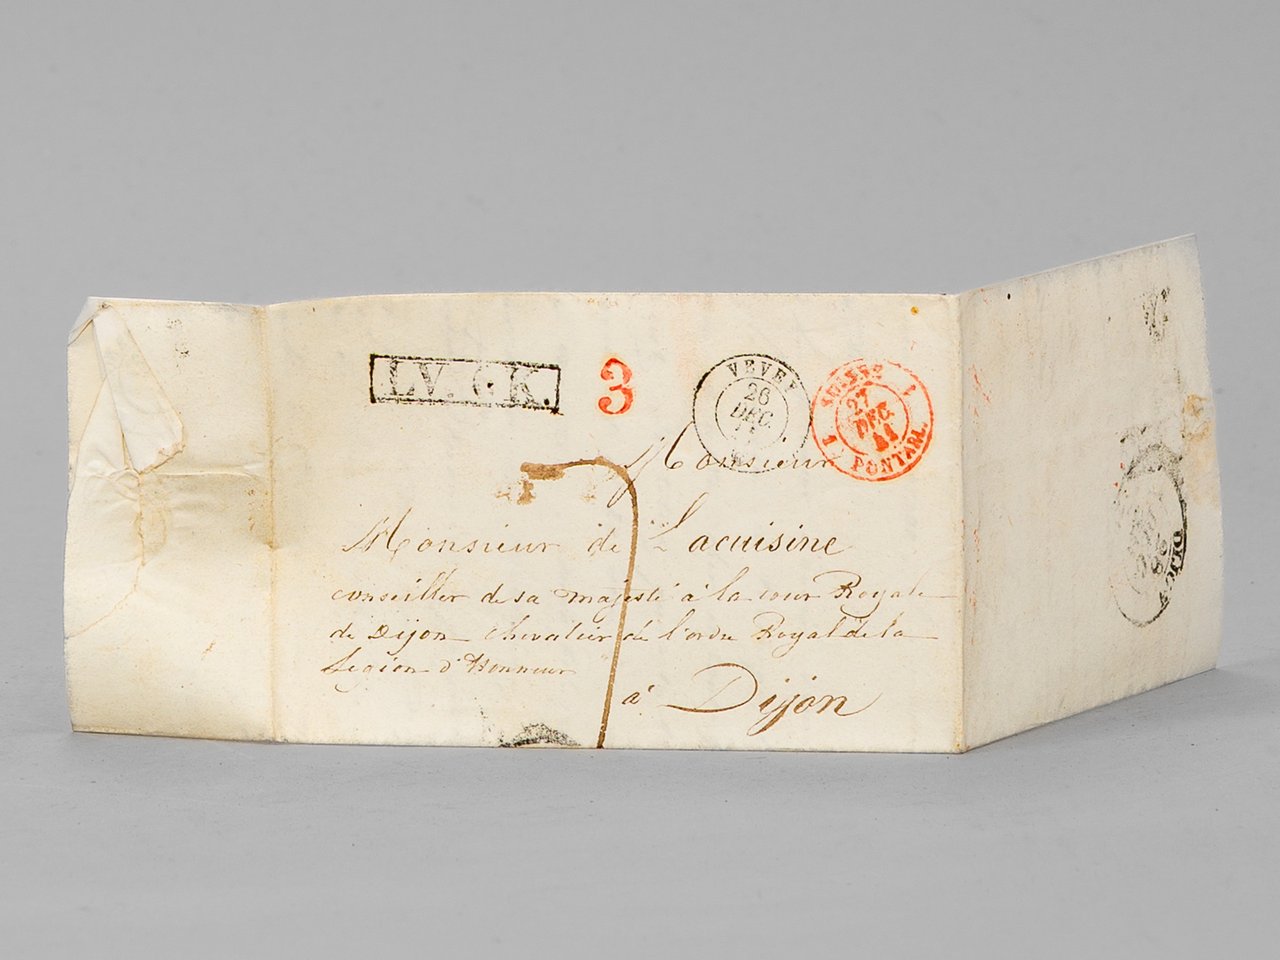 LV. CK.
3
VEVEY
26
DEC.
SUISSE
1 1
27
DEC.
41
PONTARL.
Monsieur
Monsieur de Lacuisine
conseiller de sa majesté à la cour Royale
de Dijon chevalier de l'ordre Royal de la
Légion d'Honneur
à Dijon
7
DIJON